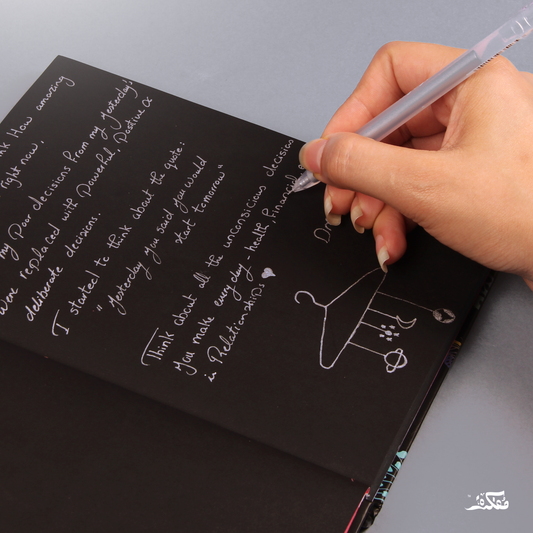 nk How amazing
right now,
my Poor decisions from my yesterday's
were replaced with Powerful, Positive &
deliberate decisions.
I started to think about the quote:
"Yesterday you said you would
start tomorrow"
Think about all the unconscious decisions
you make every day - health, Financial
in Relationships
Dr
مفكرة